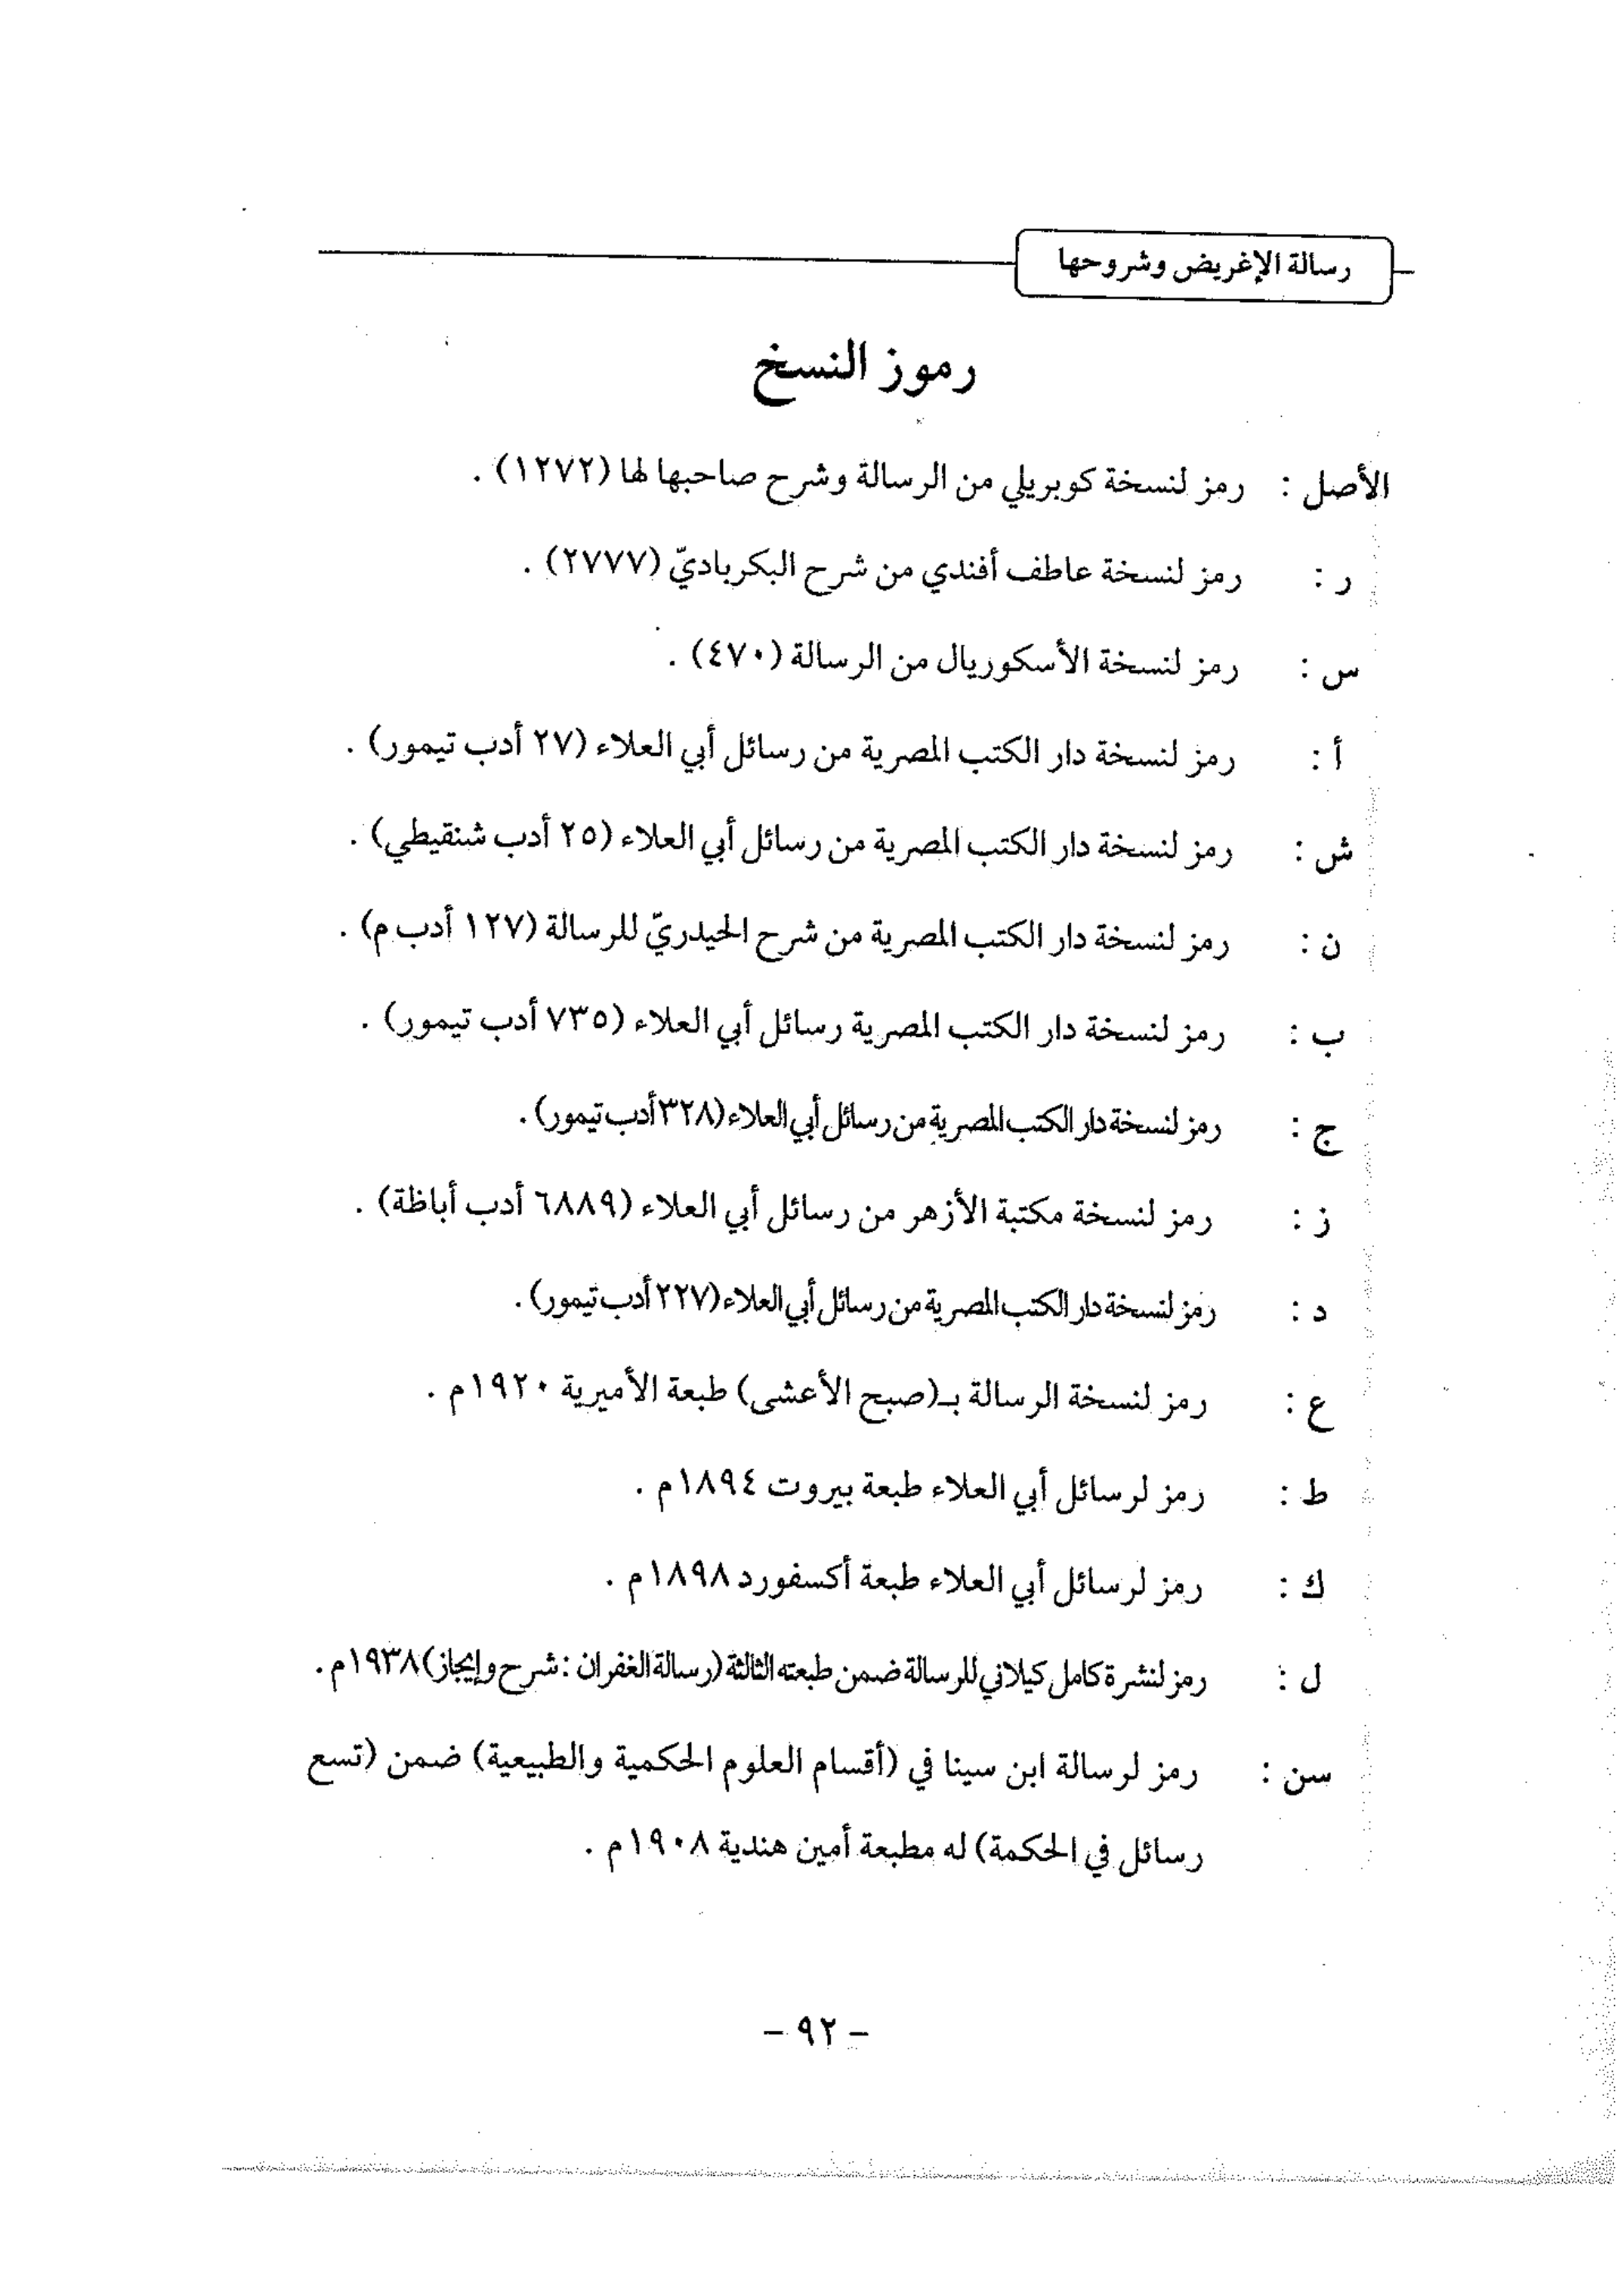 رسالة الإغريض وشروحها
رموز النسخ
الأصل : رمز لنسخة كوبريلي من الرسالة وشرح صاحبها لها (١٢٧٢) .
ر : رمز لنسخة عاطف أفندي من شرح البكرباديّ (٢٧٧٧) .
س : رمز لنسخة الأسكوريال من الرسالة (٤٧٠) .
أ : رمز لنسخة دار الكتب المصرية من رسائل أبي العلاء (٢٧ أدب تيمور) .
ش : رمز لنسخة دار الكتب المصرية من رسائل أبي العلاء (٢٥ أدب شنقيطي) .
ن : رمز لنسخة دار الكتب المصرية من شرح الحيدريّ للرسالة (١٢٧ أدب م) .
ب : رمز لنسخة دار الكتب المصرية رسائل أبي العلاء (٧٣٥ أدب تيمور) .
ج : رمز لنسخة دار الكتب المصرية من رسائل أبي العلاء (٣٢٨ أدب تيمور) .
ز : رمز لنسخة مكتبة الأزهر من رسائل أبي العلاء (٦٨٨٩ أدب أباظة) .
د : رمز لنسخة دار الكتب المصرية من رسائل أبي العلاء (٢٢٧ أدب تيمور) .
ع : رمز لنسخة الرسالة بـ(صبح الأعشى) طبعة الأميرية ١٩٢٠م .
ط : رمز لرسائل أبي العلاء طبعة بيروت ١٨٩٤م .
ك : رمز لرسائل أبي العلاء طبعة أكسفورد ١٨٩٨م .
ل : رمز لنشرة كامل كيلاني للرسالة ضمن طبعته الثالثة (رسالة الغفران : شرح وإيجاز) ١٩٣٨م .
سن : رمز لرسالة ابن سينا في (أقسام العلوم الحكمية والطبيعية) ضمن (تسع
رسائل في الحكمة) له مطبعة أمين هندية ١٩٠٨م .
- ٩٢ -